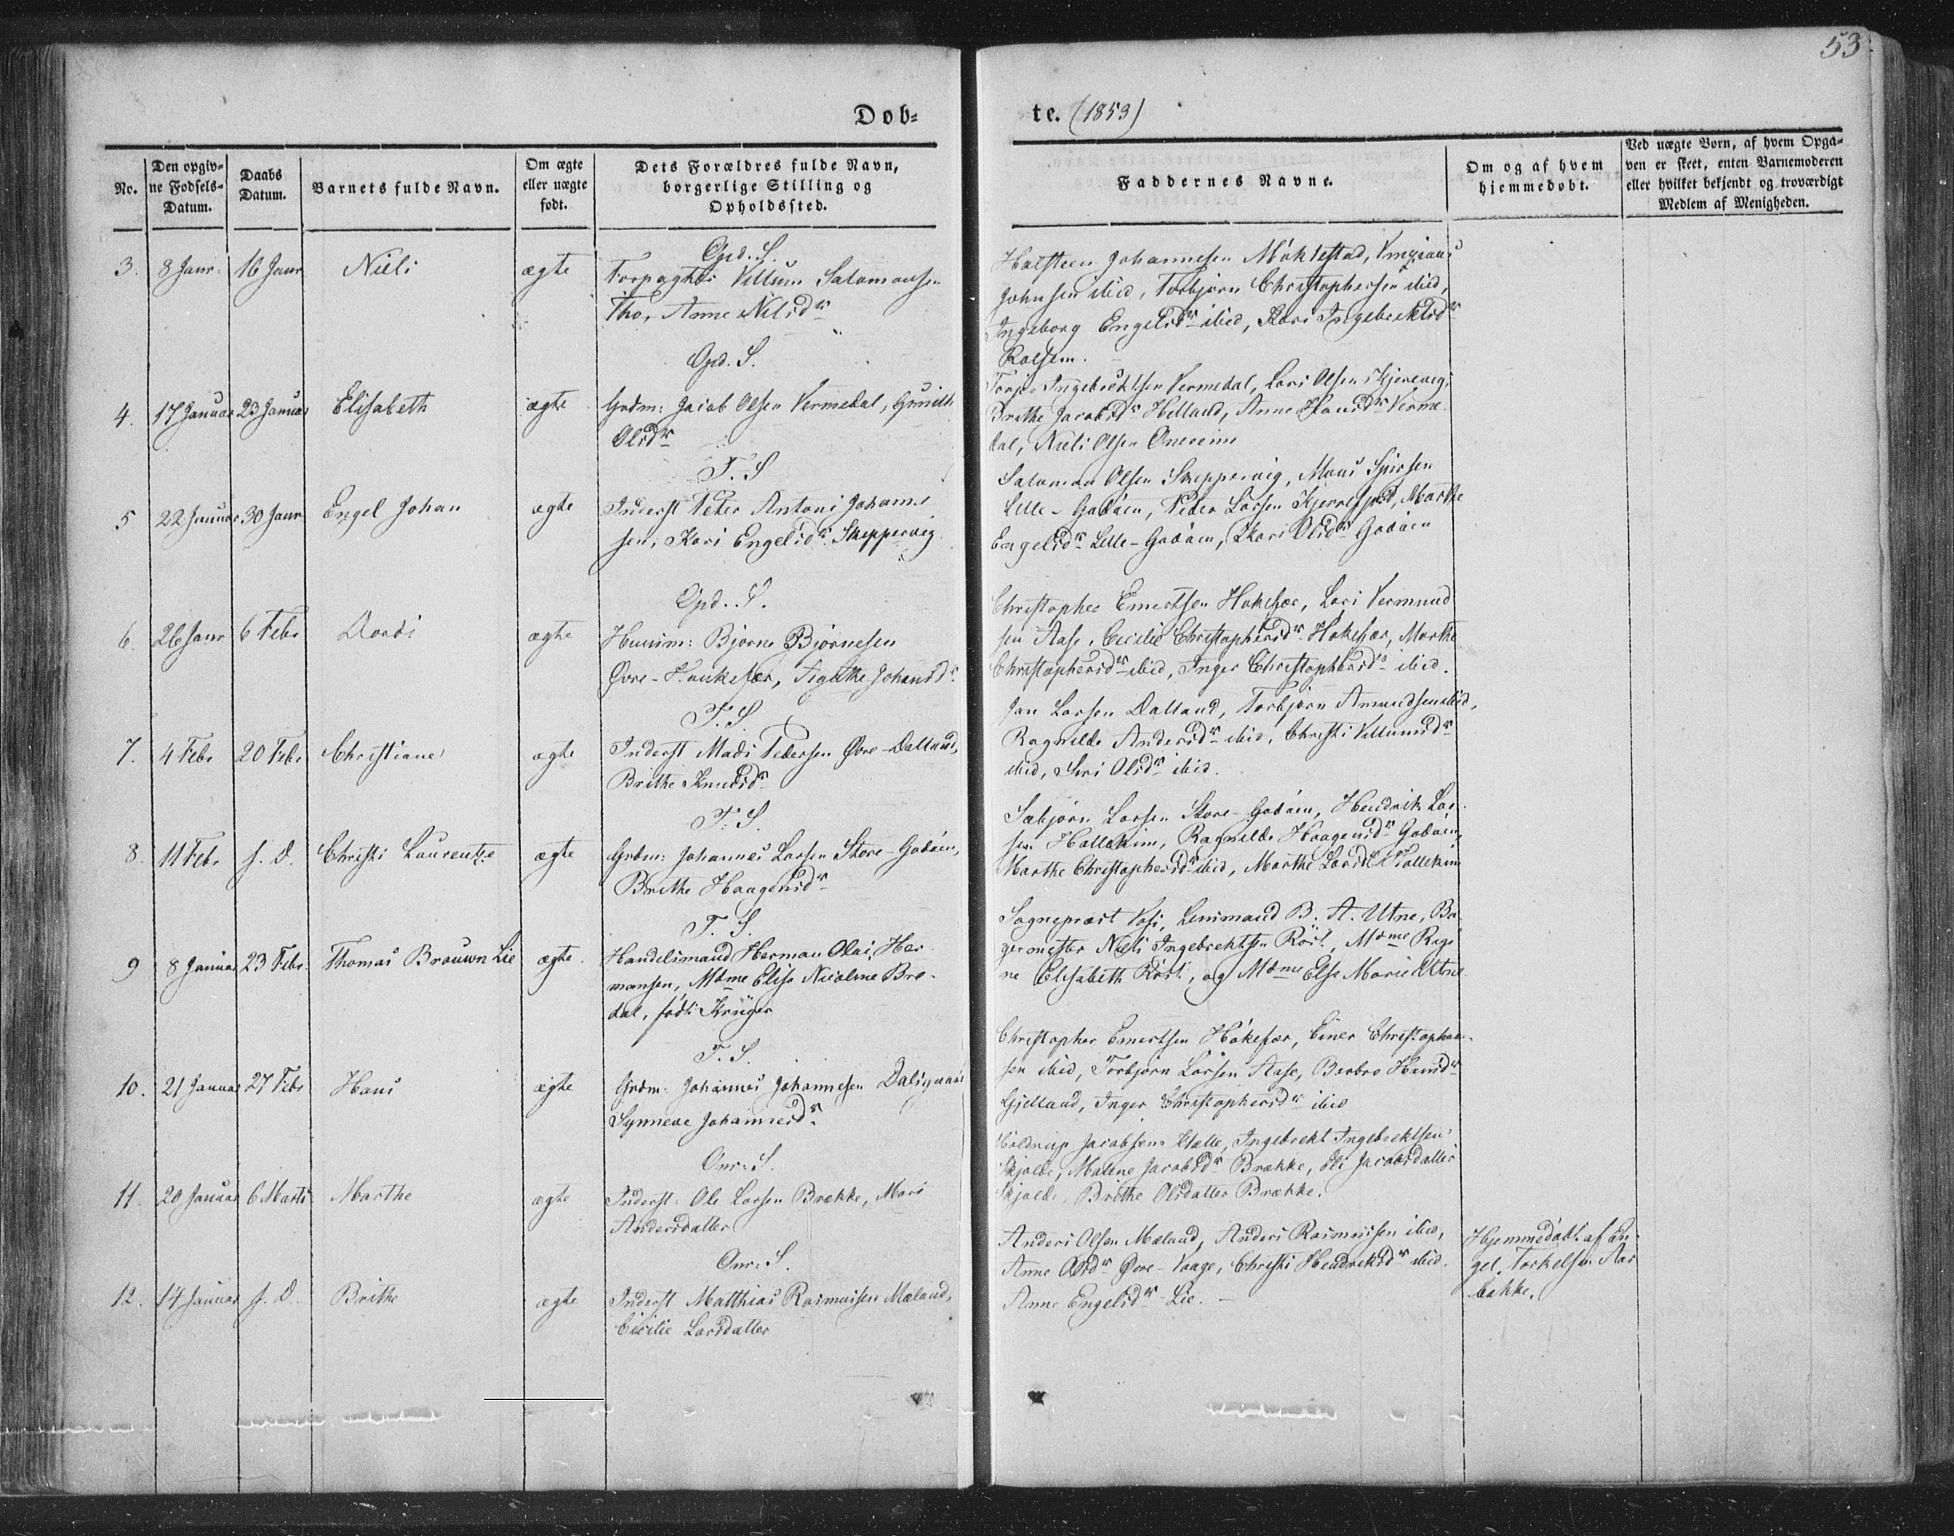 53.
Døb-
te. (1853)
No.
Den opgiv-
ne Fødsels-
Datum.
Daabs
Datum.
Barnets fulde Navn.
Om ægte
eller uægte
født.
Dets Forældres fulde Navn,
borgerlige Stilling og
Opholdssted.
Faddernes Navne.
Om og af hvem
hjemmedøbt.
Ved uægte Børn, af hvem Opga-
ven er skeet, enten Barnemoderen
eller hvilket bekjendt og troværdigt
Medlem af Menigheden.
3. 8 Janr. 16 Janr Niels ægte
Opd. S.
Forpagter Villum Salomonsen
Tho, Anne Nilsdr
Halsteen Johannesen Møklestad,
Johnsen ibid, Torbjørn Christophersen ibid,
Ingeborg Engelsdr ibid, Kari Ingebrektsdr
Kalsem.
4. 17 Januar 23 Januar Elisabeth ægte
Opd. S.
Grdm: Jacob Olsen Vermedal, Gunild
Olsdr
Ingebrektsen Vermedal, Lars Olsen Skjerevig,
Brithe Jacobsdr Helland, Anne Hansdr Verme-
dal, Niels Olsen
5 22 Januar 30 Janr Engel Johan ægte
T. S
Inderst Peter Antoni Johanne-
sen, Kari Engelsdr Skeppervig
Salamon Olsen Skeppervig, Mons
Lille-Godøen, Peder Larsen Kjerrefjord, Marthe
Engelsdr Lille-Godøen, Kari Olsdr Godøen
6. 26 Janr 6 Febr Dordi ægte
Opd. S.
Huusm: Bjørne Bjørnesen
Øvre-Haukefær, Johansdr
Christopher Emertsen Hokefær, Lars Vermund-
sen Aase, Cecilie Christophersdr Hokefær, Marthe
Christophersdr ibid, Inger Christophersdr ibid.
7. 4 Febr 20 Febr Christiane ægte
T. S
Inderst Mads Pedersen Øvre-Dalland,
Brithe Knudsdr
Jan Larsen Dalland, Torbjørn Amundsen ibid,
Ragnilde Andersdr ibid, Christi Villumsdr
ibid, Siri Olsdr ibid.
8. 11 Febr s. D. Christi Laurentze ægte
T. S.
Grdm: Johannes Larsen Store-Godøen,
Brithe Haagensdr
Sæbjørn Larsen Store-Godøen, Hendrik Lar-
sen Hallekim, Ragnilde Haagensdr Godøen,
Marthe Christophersdr ibid, Marthe Larsdr Hallekim
9 8 Januar 23 Febr. Thomas Brouwn Lie ægte
T. S.
Handelsmand Herman Olai Her-
mansen, Mdme Elise Nicoline Bre-
dal, født Krüger
Sognepræst Vosi, Lensmand B. A. Utne, Ba-
germester Niels Ingebrektsen Røst, Mdme Regi-
ne Elisabeth Røst, og Mdme Else Marie Utne
10. 21 Januar 27 Febr Hans ægte
T. S.
Grdm: Johannes Johannesen
Synneve Johannesdr
Christopher Emertsen Høkefær, Einer Christopher-
sen ibid, Torbjørn Larsen Aase, Barbro Hansdr
Gjelland, Inger Christophersdr ibid
11. 20 Januar 6 Marts Marthe ægte
Onr: S.
Inderst: Ole Larsen Brække, Mari
Andersdatter
Jacobsen Ingebrekt Ingebrektsen
Skjolde, Malene Jacobsdr Brække, Jacobsdatter
Skjolde, Brithe Olsdatter Brække.
12. 14 Januar s. D. Brithe ægte
Onr: S.
Inderst Matthias Rasmussen Mæland,
Cicilie Larsdatter
Anders Olsen Mæland, Anders Rasmussen ibid,
Anne Olsdr Øvre-Vaage, Christi Hendriksdr ibid.
Anne Engelsdr Lie.
Hjemmedøbt af En-
gel Torkelsen Aar-
bakke.